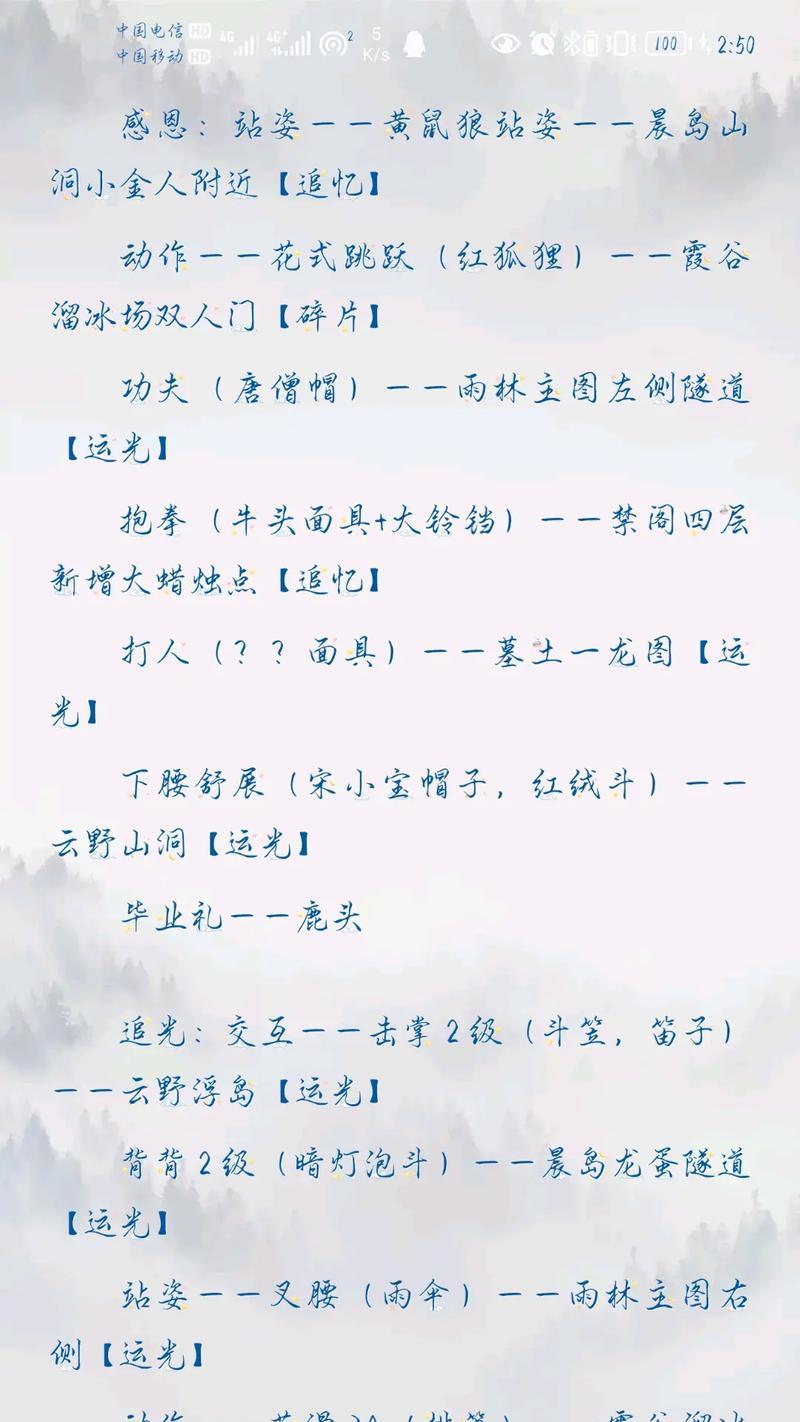 中国电信 HD 4G 4G+ 2 5 100 2:50
中国移动 HD K/s
感恩：站姿——黄鼠狼站姿——晨岛山
洞小金人附近【追忆】
动作——花式跳跃（红狐狸）——霞谷
溜冰场双人门【碎片】
功夫（唐僧帽）——雨林主图左侧隧道
【运光】
抱拳（牛头面具+大铃铛）——禁阁四层
新增大蜡烛点【追忆】
打人（？？面具）——墓土一龙图【运
光】
下腰舒展（宋小宝帽子，红绒斗）——
云野山洞【运光】
毕业礼——鹿头
追光：交互——击掌2级（斗笠，笛子）
——云野浮岛【运光】
背背2级（暗灯泡斗）——晨岛龙蛋隧道
【运光】
站姿——叉腰（雨伞）——雨林主图右
侧【运光】